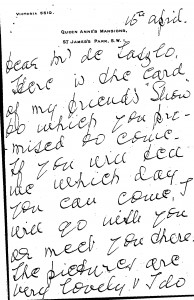 VICTORIA 2210.
QUEEN ANNE'S MANSIONS,
ST JAMES'S PARK, S.W.
16th April.
Dear Mr de Laszlo.
Here is the card
of my friends' Show
to which you pro-
mised to come.
If you will tell
me which day
you can come, I
will go with you
or meet you there.
The pictures are
very lovely & I do